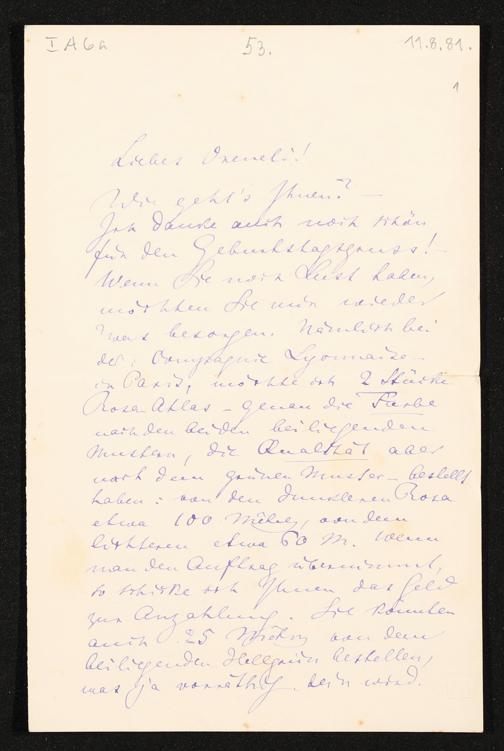 I A 6a 53. 11.8.81.
1
Liebes Vreneli!
Wie geht's Ihnen? —
Ich danke auch noch schön
für den Geburtstagsgruss! —
Wenn Sie noch Lust haben,
möchten Sie mir wieder
was besorgen. Nämlich bei
der: Compagnie Lyonnaise —
in Paris, möchte ich 2 Stücke
Rosa Atlas — genau die Farbe
nach den beiden beiliegenden
Mustern, die Qualität aber
nach dem grünen Muster — bestellt
haben: von den dunkleren Rosa
etwa 100 Mètres, von dem
lichteren etwa 60 M. Wenn
man den Auftrag übernimmt,
so schicke ich Ihnen das Geld
zur Anzahlung. Sie könnten
auch 25 Mètres von dem
beiliegenden Hellgrün bestellen,
was ja vorräthig sein wird.